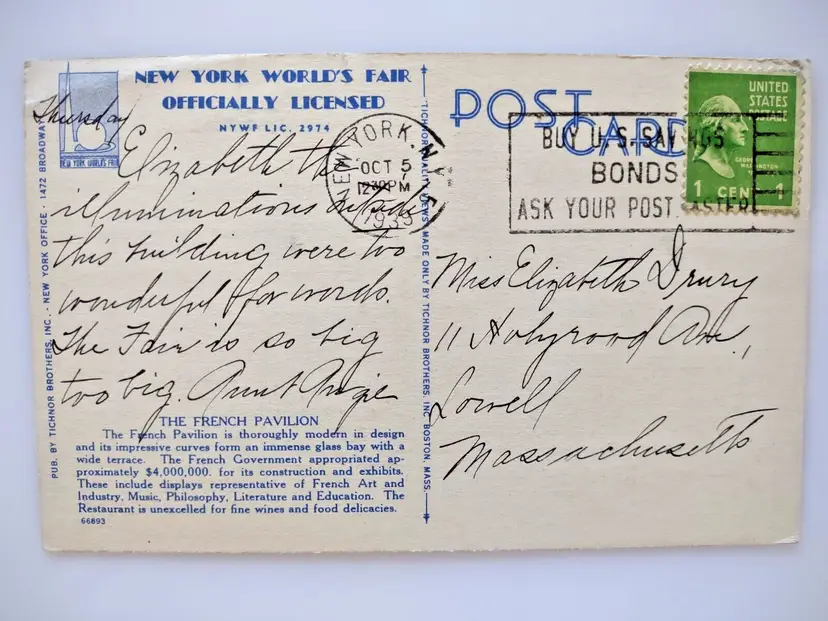 NEW YORK WORLD'S FAIR
OFFICIALLY LICENSED
NYWF LIC. 2974
NEW YORK WORLD'S FAIR
Thursday
Elizabeth the
illuminations
this building were too
wonderful for words.
The Fair is so big
too big. Aunt Angie
THE FRENCH PAVILION
The French Pavilion is thoroughly modern in design
and its impressive curves form an immense glass bay with a
wide terrace. The French Government appropriated ap-
proximately $4,000,000. for its construction and exhibits.
These include displays representative of French Art and
Industry, Music, Philosophy, Literature and Education. The
Restaurant is unexcelled for fine wines and food delicacies.
66893
PUB. BY TICHNOR BROTHERS, INC. - NEW YORK OFFICE - 1472 BROADWAY
TICHNOR QUALITY VIEWS MADE ONLY BY TICHNOR BROTHERS, INC. BOSTON, MASS.
POST CARD
NEW YORK, N.Y.
OCT 5
PM
1939
BUY U.S. SAVINGS
BONDS
ASK YOUR POSTMASTER
UNITED
STATES
POSTAGE
GEORGE
WASHINGTON
1 CENT 1
Miss Elizabeth Drury
11 Holyrood Ave,
Lowell
Massachusetts